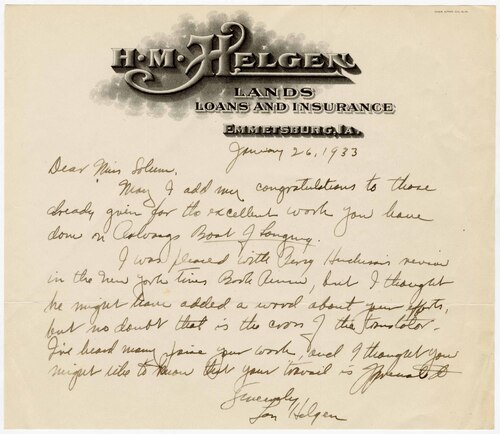 H. M. HELGEN
LANDS
LOANS AND INSURANCE
EMMETSBURG, IA.
January 26, 1933
Dear Miss Solum,
May I add my congratulations to those
already given for the excellent work you have
done on Boat of Longing.
I was pleased with Percy review
in the New York times Book Review, but I thought
he might have added a word about your efforts,
but no doubt that is the cross of the translator.
I've heard many praise your work, and I thought you
might like to know that your travail is
Sincerely,
Helgen